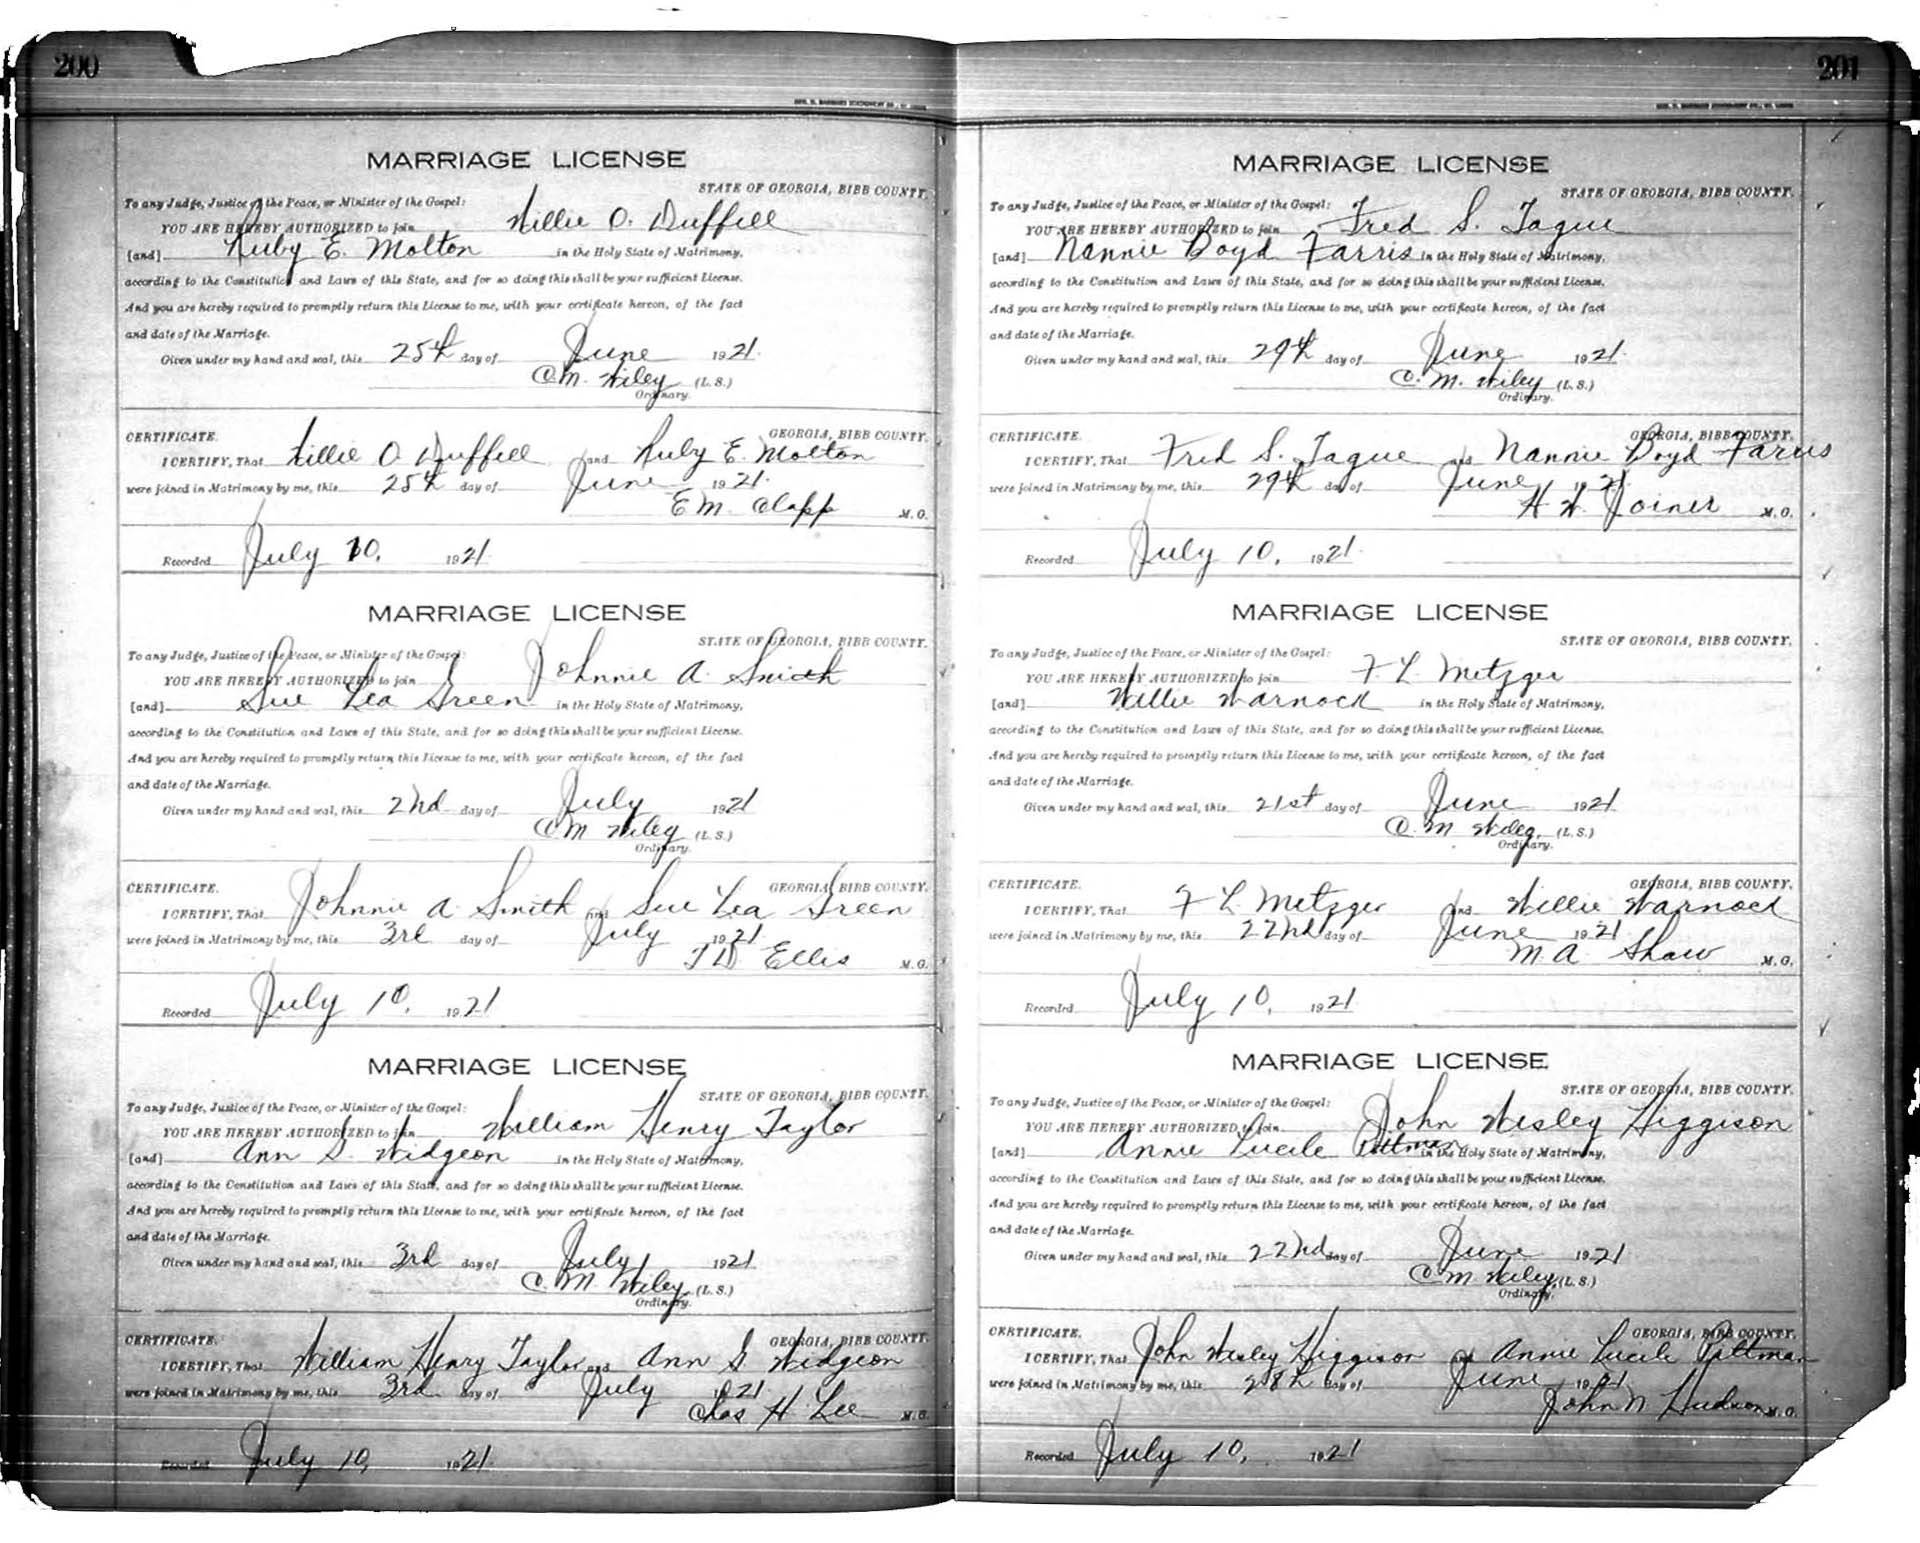 200
MARRIAGE LICENSE
STATE OF GEORGIA, BIBB COUNTY.
To any Judge, Justice of the Peace, or Minister of the Gospel:
YOU ARE HEREBY AUTHORIZED to join Willie O. Duffell
[and] Ruby E. Molton in the Holy State of Matrimony,
according to the Constitution and Laws of this State, and for so doing this shall be your sufficient License.
And you are hereby required to promptly return this License to me, with your certificate hereon, of the fact
and date of the Marriage.
Given under my hand and seal, this 25th day of June 1921.
C.M. Wiley (L.S.)
Ordinary.
CERTIFICATE. GEORGIA, BIBB COUNTY.
I CERTIFY, That Willie O Duffell and Ruby E. Molton
were joined in Matrimony by me, this 25th day of June 1921.
E M. Clapp M.G.
Recorded July 10, 1921.
MARRIAGE LICENSE
STATE OF GEORGIA, BIBB COUNTY.
To any Judge, Justice of the Peace, or Minister of the Gospel:
YOU ARE HEREBY AUTHORIZED to join Johnnie A. Smith
[and] Sue Lea Green in the Holy State of Matrimony,
according to the Constitution and Laws of this State, and for so doing this shall be your sufficient License.
And you are hereby required to promptly return this License to me, with your certificate hereon, of the fact
and date of the Marriage.
Given under my hand and seal, this 2nd day of July 1921
C M Wiley (L.S.)
Ordinary.
CERTIFICATE. GEORGIA, BIBB COUNTY.
I CERTIFY, That Johnnie A Smith and Sue Lea Green
were joined in Matrimony by me, this 3rd day of July 1921
T D Ellis M.G.
Recorded July 10, 1921
MARRIAGE LICENSE
STATE OF GEORGIA, BIBB COUNTY.
To any Judge, Justice of the Peace, or Minister of the Gospel:
YOU ARE HEREBY AUTHORIZED to join William Henry Taylor
[and] Ann G. Widgeon in the Holy State of Matrimony,
according to the Constitution and Laws of this State, and for so doing this shall be your sufficient License.
And you are hereby required to promptly return this License to me, with your certificate hereon, of the fact
and date of the Marriage.
Given under my hand and seal, this 3rd day of July 1921
C. M. Wiley (L.S.)
Ordinary.
CERTIFICATE. GEORGIA, BIBB COUNTY.
I CERTIFY, That William Henry Taylor and Ann G Widgeon
were joined in Matrimony by me, this 3rd day of July 1921
Chas H Lee M.G.
Recorded July 10, 1921.
201
MARRIAGE LICENSE
STATE OF GEORGIA, BIBB COUNTY.
To any Judge, Justice of the Peace, or Minister of the Gospel:
YOU ARE HEREBY AUTHORIZED to join Fred S. Tague
[and] Nannie Boyd Farris in the Holy State of Matrimony,
according to the Constitution and Laws of this State, and for so doing this shall be your sufficient License.
And you are hereby required to promptly return this License to me, with your certificate hereon, of the fact
and date of the Marriage.
Given under my hand and seal, this 29th day of June 1921.
C. M. Wiley (L.S.)
Ordinary.
CERTIFICATE. GEORGIA, BIBB COUNTY.
I CERTIFY, That Fred S. Tague and Nannie Boyd Farris
were joined in Matrimony by me, this 29th day of June 1921.
H W Joiner M.G.
Recorded July 10, 1921.
MARRIAGE LICENSE
STATE OF GEORGIA, BIBB COUNTY.
To any Judge, Justice of the Peace, or Minister of the Gospel:
YOU ARE HEREBY AUTHORIZED to join F L Metzger
[and] Willie Warnock in the Holy State of Matrimony,
according to the Constitution and Laws of this State, and for so doing this shall be your sufficient License.
And you are hereby required to promptly return this License to me, with your certificate hereon, of the fact
and date of the Marriage.
Given under my hand and seal, this 21st day of June 1921
C. M Wiley. (L.S.)
Ordinary.
CERTIFICATE. GEORGIA, BIBB COUNTY.
I CERTIFY, That F L Metzger and Willie Warnock
were joined in Matrimony by me, this 22nd day of June 1921
M. A Shaw M.G.
Recorded July 10, 1921
MARRIAGE LICENSE
STATE OF GEORGIA, BIBB COUNTY.
To any Judge, Justice of the Peace, or Minister of the Gospel:
YOU ARE HEREBY AUTHORIZED to join John Wesley Higgison
[and] Annie Lucile Pittman in the Holy State of Matrimony,
according to the Constitution and Laws of this State, and for so doing this shall be your sufficient License.
And you are hereby required to promptly return this License to me, with your certificate hereon, of the fact
and date of the Marriage.
Given under my hand and seal, this 22nd day of June 1921
C M Wiley, (L.S.)
Ordinary.
CERTIFICATE. GEORGIA, BIBB COUNTY.
I CERTIFY, That John Wesley Higgison and Annie Lucile Pittman
were joined in Matrimony by me, this 28th day of June 1921
John N Hudson M.G.
Recorded July 10, 1921